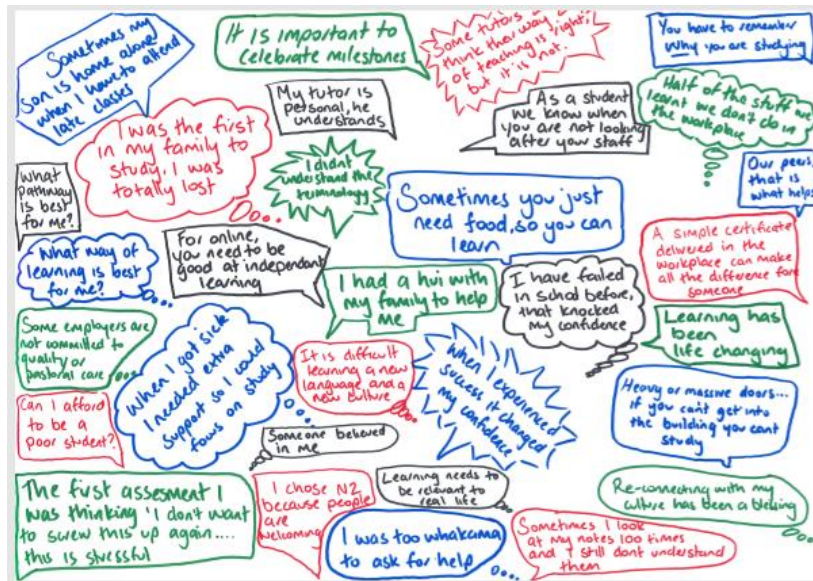 Sometimes my
son is home alone
when I have to attend
late classes
It is important to
celebrate milestones
Some tutors
think their way
of teaching is right,
but it is not.
You have to remember
Why you are studying
I was the first
in my family to
study, I was
totally lost
My tutor is
personal, he
understands
As a student
we know when
you are not looking
after your staff
Half of the stuff we
learnt we don't do in
the workplace
What
pathway
is best
for me?
I didnt
understand the
terminology
Sometimes you just
need food, so you can
learn
Our peers,
that is
what helps
What way of
learning is best
for me?
For online,
you need to be
good at independant
learning
I had a hui with
my family to help
me
I have failed
in school before,
that knocked
my confidence
A simple certificate
delivered in the
workplace can make
all the difference for
someone
Some employers are
not committed to
quality or
pastoral care
When I got sick
I needed extra
support so I could
focus on study
It is difficult
learning a new
language and a
new culture
When I experienced
success it changed
my confidence
Learning has
been
life changing
Can I afford
to be a
poor student?
Someone believed
in me
Heavy or massive doors...
if you can't get into
the building you cant
study
The first assesment I
was thinking 'I don't want
to screw this up again....
this is stressful
I chose NZ
because people
are
welcoming
Learning needs to
be relevant to
real life
Re-connecting with my
culture has been a blessing
I was too whakama
to ask for help
Sometimes I look
at my notes 100 times
and I still dont understand
them